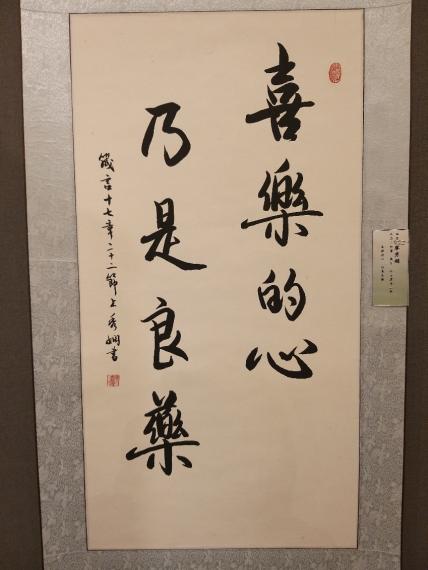 喜樂的心
乃是良藥
箴言十七章二十二節上秀嫻書